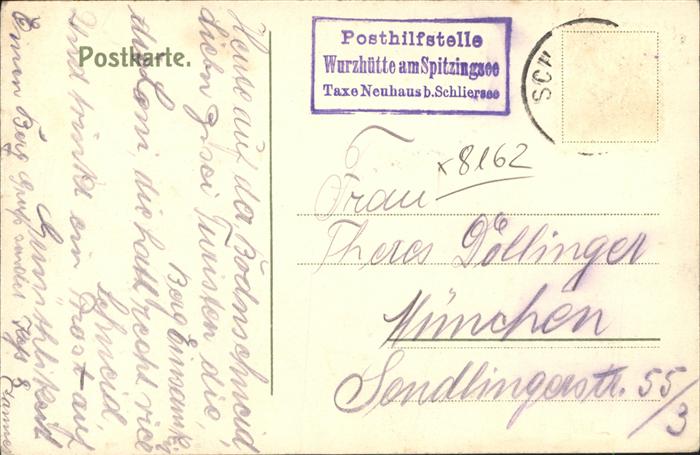 Postkarte.
Posthilfstelle
Wurzhütte am Spitzingsee
Taxe Neuhaus b. Schliersee
SCH
x 8162
Frau
Theres Döllinger
München
Sendlingerstr. 55/3
Heute auf der Bodnschneid
Touristen die,
Berg Einsamk.
die Loni, die hat recht viel
Schneid,
und trinkt ein Prost auf
Gemüthlikeit
Einen Berg Gruß sendet